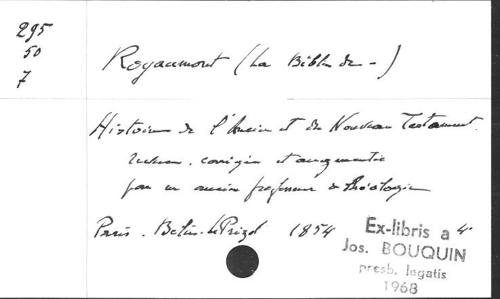 295
50
7
Royaumont (La Bible de -)
Histoire de l'Ancien et du Nouveau Testament.
revue, corrigée et augmentée
par un ancien professeur de théologie
Paris. Belin-le Prieur 1854 4°
Ex-libris a
Jos. BOUQUIN
presb. legatis
1968